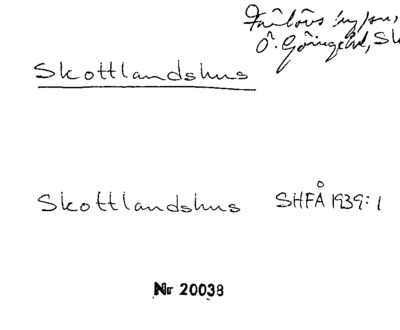 Färlövs
Ö. Göinge hd, Sk
Skottlandshus
Skottlandshus SHFÅ 1939:1
Nr 20038